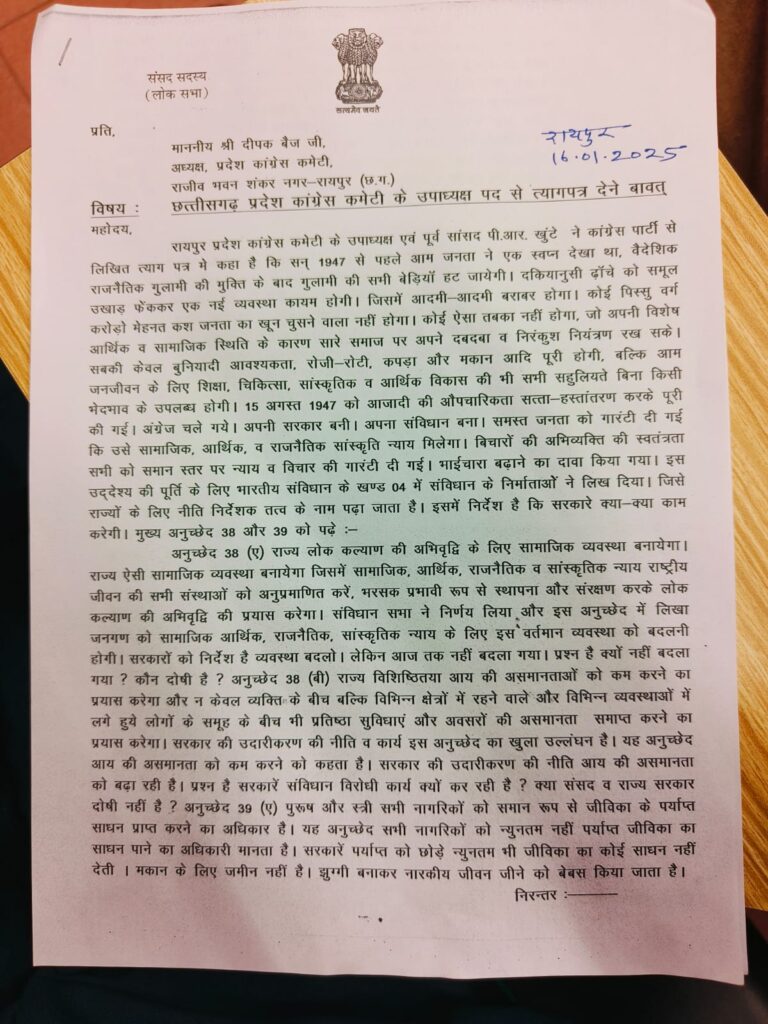 सत्यमेव जयते
संसद सदस्य
(लोक सभा)
रायपुर
16.01.2025
प्रति,
माननीय श्री दीपक बैज जी,
अध्यक्ष, प्रदेश कांग्रेस कमेटी,
राजीव भवन शंकर नगर–रायपुर (छ.ग.)
विषय : छत्तीसगढ़ प्रदेश कांग्रेस कमेटी के उपाध्यक्ष पद से त्यागपत्र देने बावत्
महोदय,
रायपुर प्रदेश कांग्रेस कमेटी के उपाध्यक्ष एवं पूर्व सांसद पी.आर. खुंटे ने कांग्रेस पार्टी से
लिखित त्याग पत्र मे कहा है कि सन् 1947 से पहले आम जनता ने एक स्वप्न देखा था, वैदेशिक
राजनैतिक गुलामी की मुक्ति के बाद गुलामी की सभी बेड़ियाँ हट जायेगी। दकियानुसी ढ़ाँचे को समूल
उखाड़ फेंककर एक नई व्यवस्था कायम होगी। जिसमें आदमी–आदमी बराबर होगा। कोई पिस्सु वर्ग
करोड़ो मेहनत कश जनता का खून चुसने वाला नहीं होगा। कोई ऐसा तबका नहीं होगा, जो अपनी विशेष
आर्थिक व सामाजिक स्थिति के कारण सारे समाज पर अपने दबदबा व निरंकुश नियंत्रण रख सके।
सबकी केवल बुनियादी आवश्यकता, रोजी–रोटी, कपड़ा और मकान आदि पूरी होगी, बल्कि आम
जनजीवन के लिए शिक्षा, चिकित्सा, सांस्कृतिक व आर्थिक विकास की भी सभी सहुलियते बिना किसी
भेदभाव के उपलब्ध होगी। 15 अगस्त 1947 को आजादी की औपचारिकता सत्ता–हस्तांतरण करके पूरी
की गई। अंग्रेज चले गये। अपनी सरकार बनी। अपना संविधान बना। समस्त जनता को गारंटी दी गई
कि उसे सामाजिक, आर्थिक, व राजनैतिक सांस्कृति न्याय मिलेगा। बिचारों की अभिव्यक्ति की स्वतंत्रता
सभी को समान स्तर पर न्याय व विचार की गारंटी दी गई। भाईचारा बढ़ाने का दावा किया गया। इस
उद्देश्य की पूर्ति के लिए भारतीय संविधान के खण्ड 04 में संविधान के निर्माताओं ने लिख दिया। जिसे
राज्यों के लिए नीति निर्देशक तत्व के नाम पढ़ा जाता है। इसमें निर्देश है कि सरकारे क्या–क्या काम
करेगी। मुख्य अनुच्छेद 38 और 39 को पढ़े :–
अनुच्छेद 38 (ए) राज्य लोक कल्याण की अभिवृद्वि के लिए सामाजिक व्यवस्था बनायेगा।
राज्य ऐसी सामाजिक व्यवस्था बनायेगा जिसमें सामाजिक, आर्थिक, राजनैतिक व सांस्कृतिक न्याय राष्ट्रीय
जीवन की सभी संस्थाओं को अनुप्रमाणित करें, भरसक प्रभावी रूप से स्थापना और संरक्षण करके लोक
कल्याण की अभिवृद्वि की प्रयास करेगा। संविधान सभा ने निर्णय लिया और इस अनुच्छेद में लिखा
जनगण को सामाजिक आर्थिक, राजनैतिक, सांस्कृतिक न्याय के लिए इस वर्तमान व्यवस्था को बदलनी
होगी। सरकारों को निर्देश है व्यवस्था बदलो। लेकिन आज तक नहीं बदला गया। प्रश्न है क्यों नहीं बदला
गया ? कौन दोषी है ? अनुच्छेद 38 (बी) राज्य विशिष्ठितया आय की असमानताओं को कम करने का
प्रयास करेगा और न केवल व्यक्ति के बीच बल्कि विभिन्न क्षेत्रों में रहने वाले और विभिन्न व्यवस्थाओं में
लगे हुये लोगों के समूह के बीच भी प्रतिष्ठा सुविधाएं और अवसरों की असमानता समाप्त करने का
प्रयास करेगा। सरकार की उदारीकरण की नीति व कार्य इस अनुच्छेद का खुला उल्लंघन है। यह अनुच्छेद
आय की असमानता को कम करने को कहता है। सरकार की उदारीकरण की नीति आय की असमानता
को बढ़ा रही है। प्रश्न है सरकारें संविधान विरोधी कार्य क्यों कर रही है ? क्या संसद व राज्य सरकार
दोषी नहीं है ? अनुच्छेद 39 (ए) पुरूष और स्त्री सभी नागरिकों को समान रूप से जीविका के पर्याप्त
साधन प्राप्त करने का अधिकार है। यह अनुच्छेद सभी नागरिकों को न्युनतम नहीं पर्याप्त जीविका का
साधन पाने का अधिकारी मानता है। सरकारें पर्याप्त को छोड़े न्युनतम भी जीविका का कोई साधन नहीं
देती । मकान के लिए जमीन नहीं है। झुग्गी बनाकर नारकीय जीवन जीने को बेबस किया जाता है।
निरन्तर :———